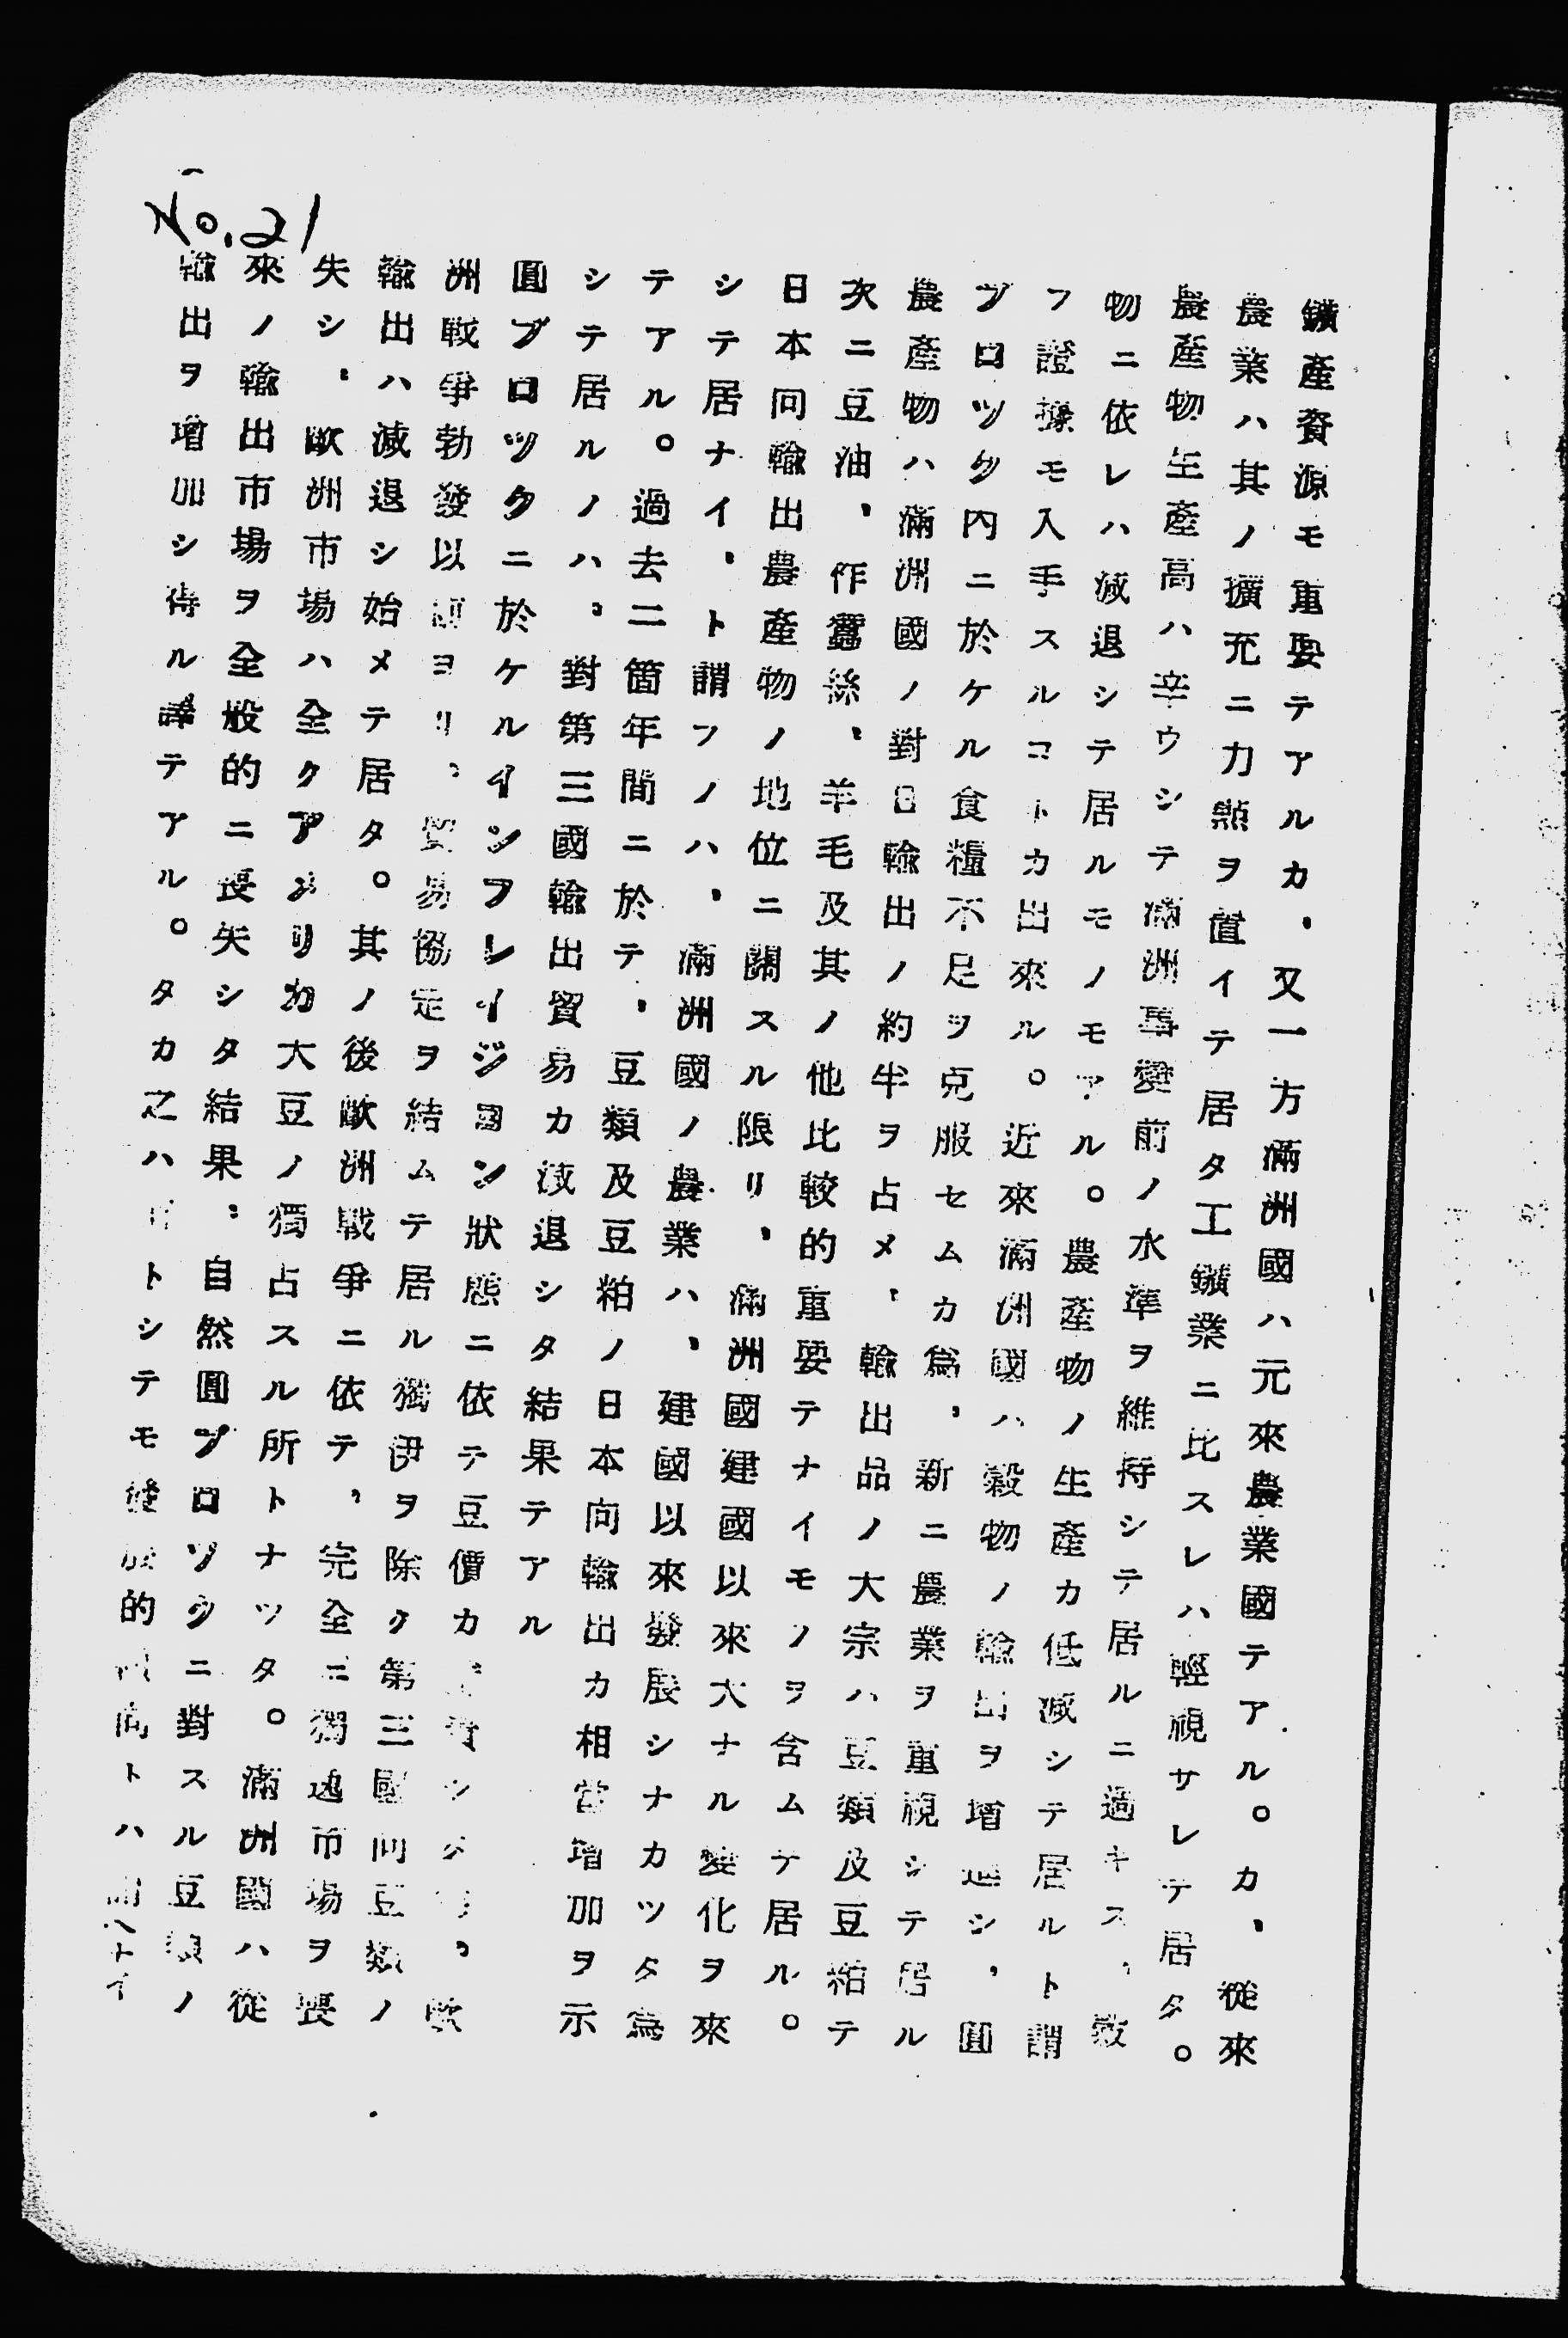 No.21
鑛產資源モ重要テアルカ、又一方滿洲國ハ元來農業國テアル。カ、從來
農業ハ其ノ擴充ニ力點ヲ置イテ居タ工鑛業ニ比スレハ輕視サレテ居タ。
農產物生產高ハ辛ウシテ滿洲事變前ノ水準ヲ維持シテ居ルニ過キス、穀
物ニ依レハ減退シテ居ルモノモアル。農產物ノ生產カ低減シテ居ルト謂
フ證據モ入手スルコトカ出來ル。近來滿洲國ハ穀物ノ輸出ヲ增進シ、圓
ブロツク內ニ於ケル食糧不足ヲ克服セムカ爲、新ニ農業ヲ重視シテ居ル
農產物ハ滿洲國ノ對日輸出ノ約半ヲ占メ、輸出品ノ大宗ハ豆類及豆粕テ
次ニ豆油、作蠶絲、羊毛及其ノ他比較的重要テナイモノヲ含ムテ居ル。
日本向輸出農產物ノ地位ニ關スル限リ、滿洲國建國以來大ナル變化ヲ來
シテ居ナイ、ト謂フノハ、滿洲國ノ農業ハ、建國以來發展シナカツタ爲
テアル。過去二箇年間ニ於テ、豆類及豆粕ノ日本向輸出カ相當增加ヲ示
シテ居ルノハ、對第三國輸出貿易カ減退シタ結果テアル
圓ブロツクニ於ケルインフレイジヨン狀態ニ依テ豆價カ貴シタ、歐
洲戰爭勃發以前ヨリ、貿易協定ヲ結ムテ居ル獨伊ヲ除ク第三國向豆類ノ
輸出ハ減退シ始メテ居タ。其ノ後歐洲戰爭ニ依テ、完全ニ獨逸市場ヲ喪
失シ、歐洲市場ハ全クアメリカ大豆ノ獨占スル所トナツタ。滿洲國ハ從
來ノ輸出市場ヲ全般的ニ喪失シタ結果、自然圓ブロツクニ對スル豆類ノ
輸出ヲ增加シ得ル譯テアル。タカ之ハトシテモ發展的向トハ謂ヘナイ